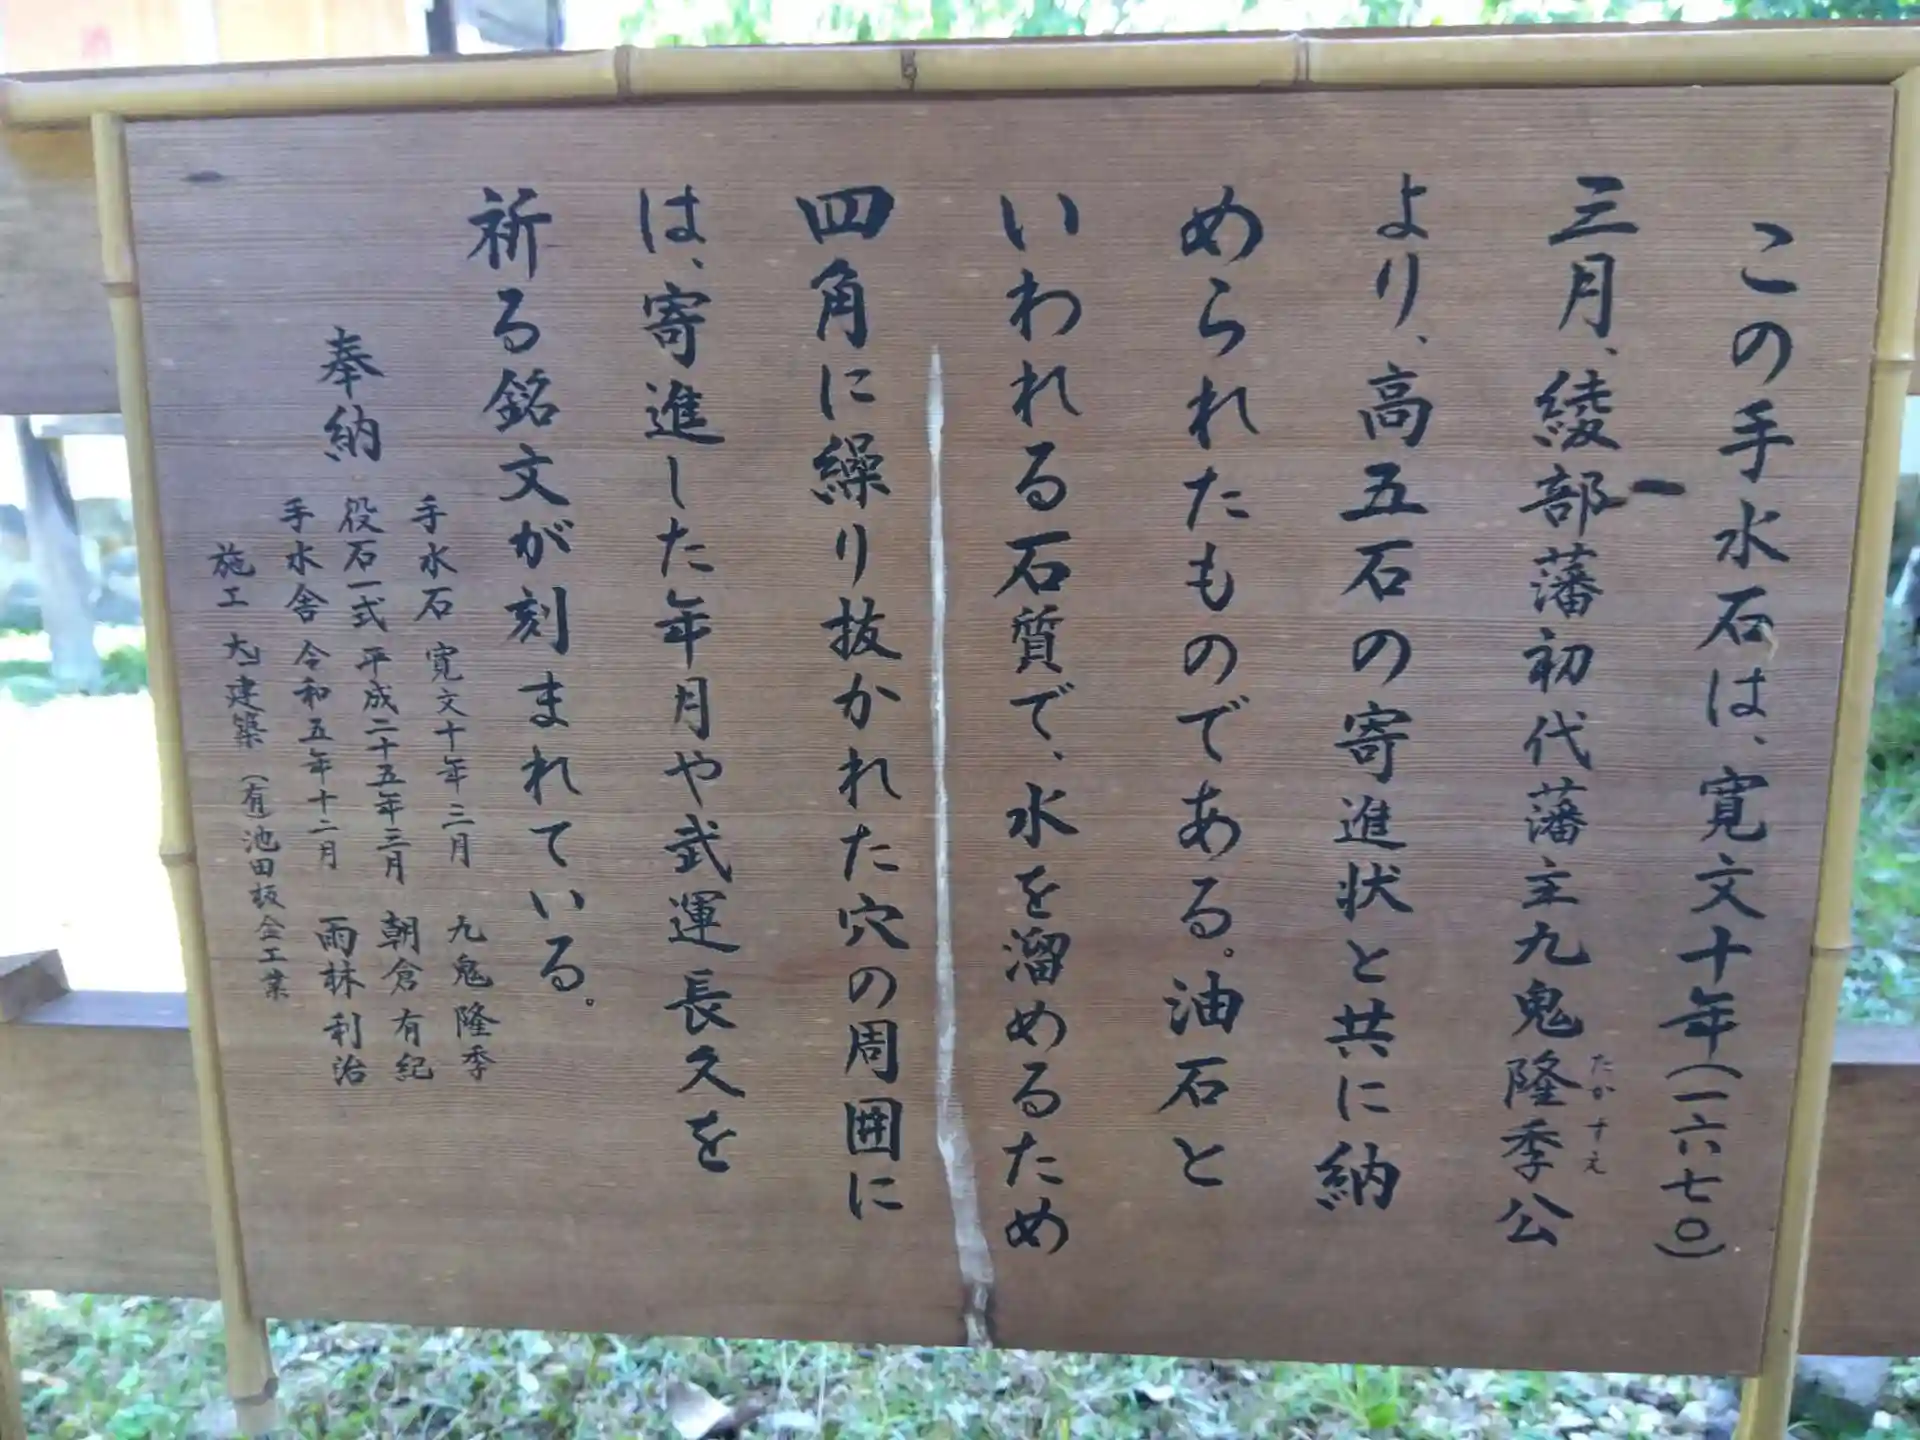 この手水石は、寛文十年(一六七〇)
三月、綾部藩初代藩主九鬼隆季公
たかすえ
より、高五石の寄進状と共に納
められたものである。油石と
いわれる石質で、水を溜めるため
四角に繰り抜かれた穴の周囲に
は、寄進した年月や武運長久を
祈る銘文が刻まれている。
奉納
手水石 寛文十年三月 九鬼隆季
役石一式 平成二十五年三月 朝倉有紀
手水舎 令和五年十二月 雨林利治
施工 建築 (有)池田板金工業